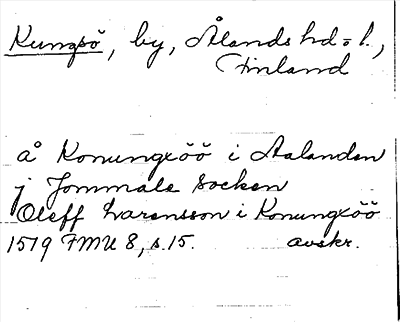 Kungsö, by, Ålands hd o l.,
Finland
å Konungxöö i Aalanden
j Jommala Socken
Oleff Larensson i Konungxöö
1519 FMU 8, s. 15. avskr.